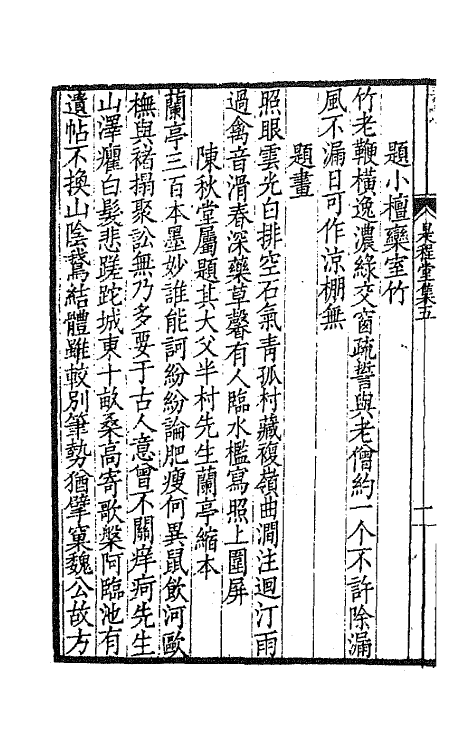 題小檀欒室竹
竹老鞭橫逸濃綠交窗疏誓與老僧約一个不許除漏
風不漏日可作涼棚無
題畫
照眼雲光白排空石氣青孤村藏複嶺曲澗注迴汀雨
過禽音滑春深藥草馨有人臨水檻寫照上圍屏
陳秋堂屬題其大父半村先生蘭亭縮本
蘭亭三百本墨妙誰能訶紛紛論肥瘦何異鼠飲河歐
橅與褚搨聚訟無乃多要于古人意曾不關痒疴先生
山澤癯白髮悲蹉跎城東十畝桑高寄歌槃阿臨池有
遺帖不換山陰鵞結體雖較別筆勢猶擘窠魏公故方
程堂集五